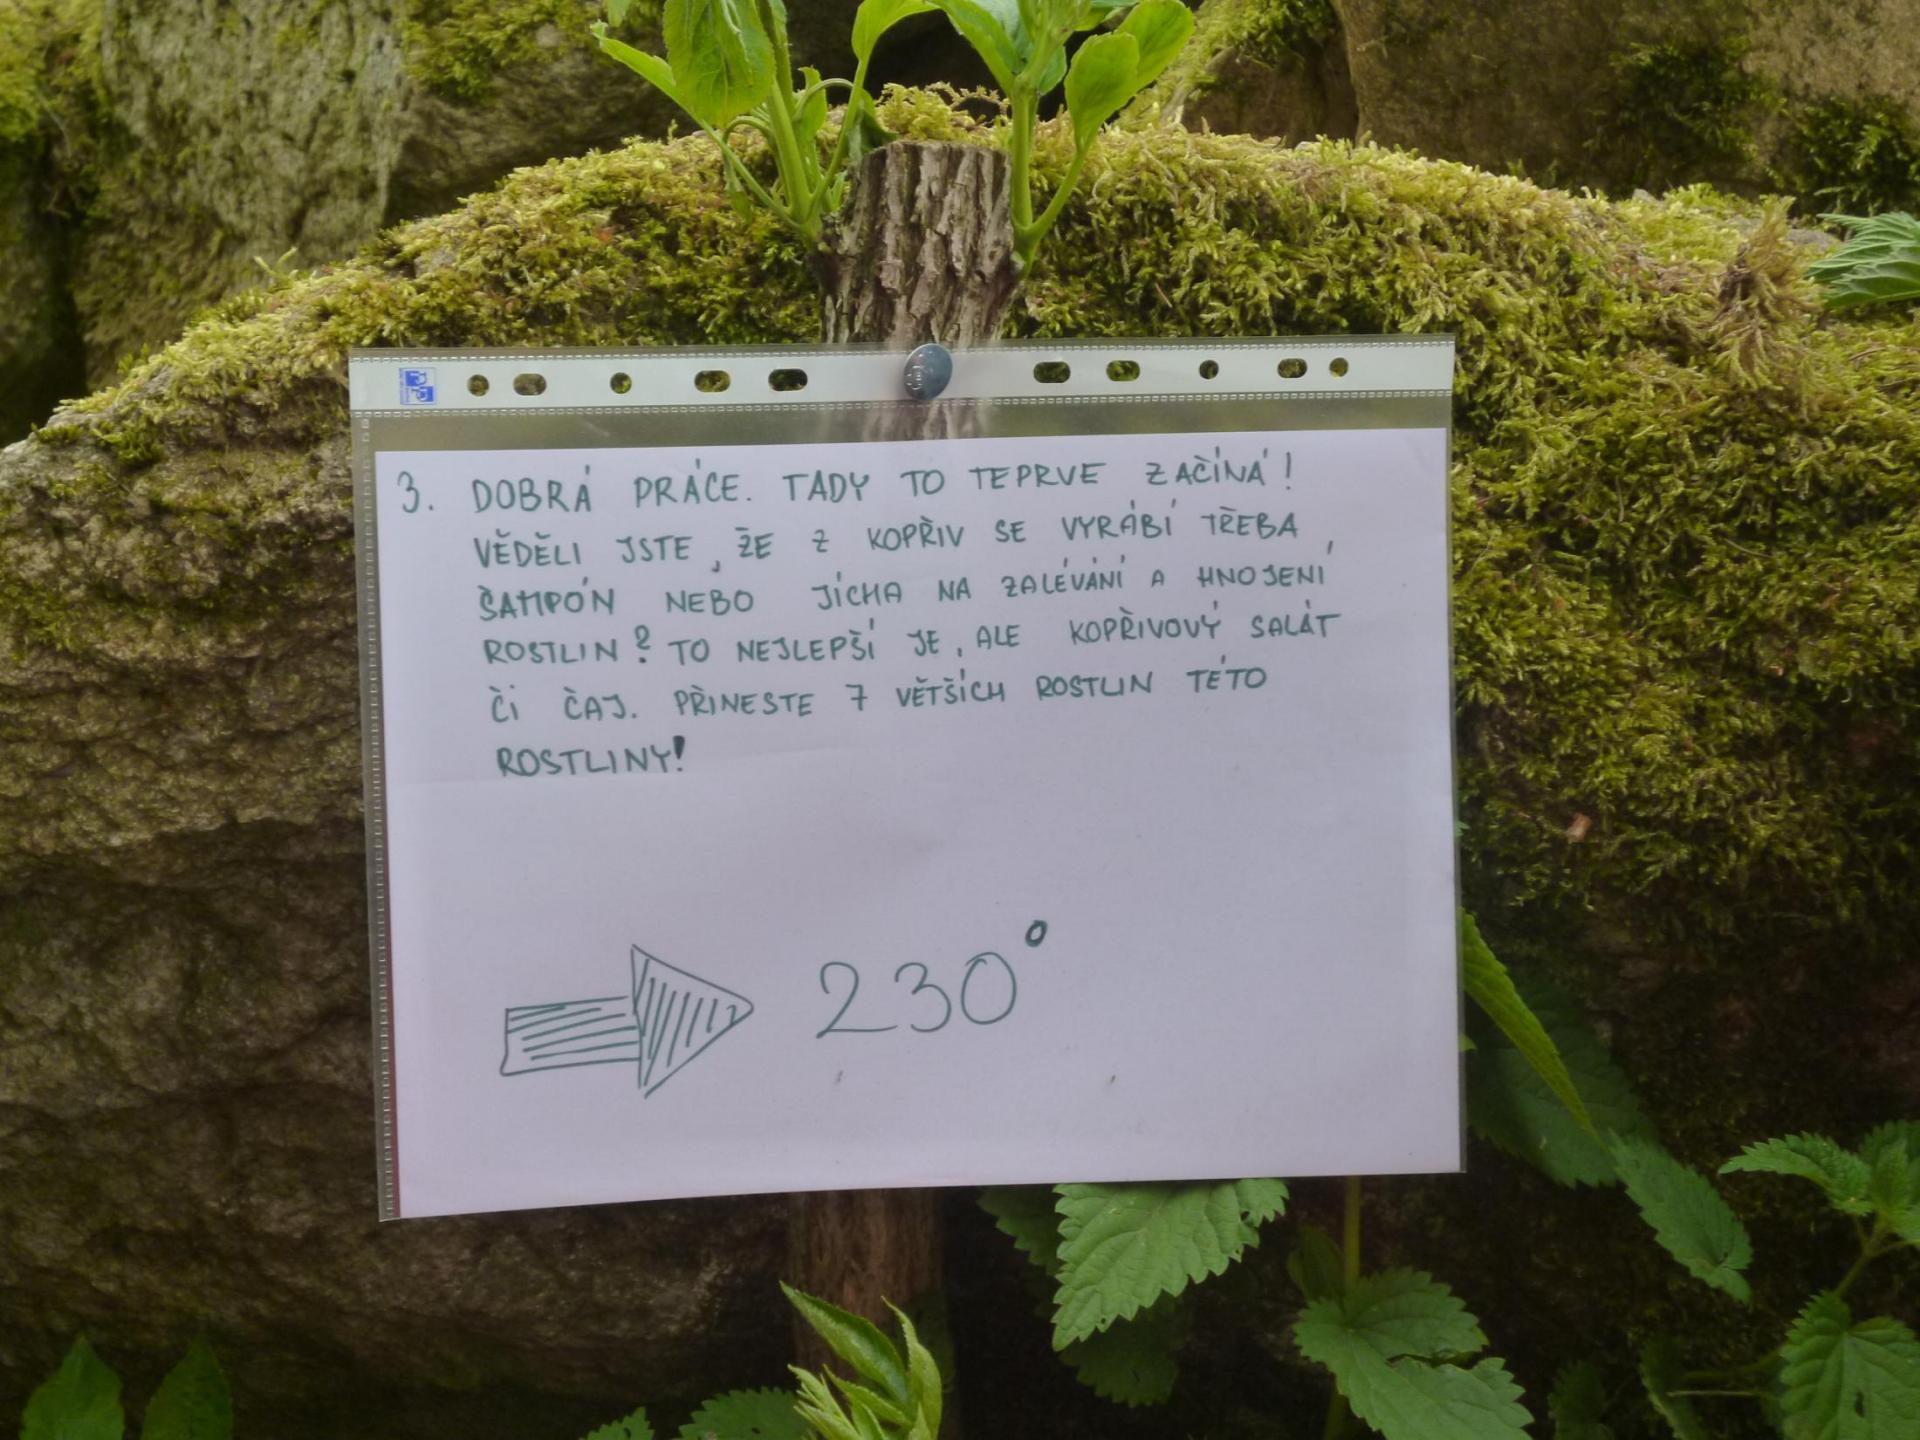 3. DOBRÁ PRÁCE. TADY TO TEPRVE ZAČÍNÁ!
VĚDĚLI JSTE, ŽE Z KOPŘIV SE VYRÁBÍ TŘEBA
ŠAMPÓN NEBO JÍCHA NA ZALÉVÁNÍ A HNOJENÍ
ROSTLIN? TO NEJLEPŠÍ JE, ALE KOPŘIVOVÝ SALÁT
ČI ČAJ. PŘINESTE 7 VĚTŠÍCH ROSTLIN TÉTO
ROSTLINY!
230°